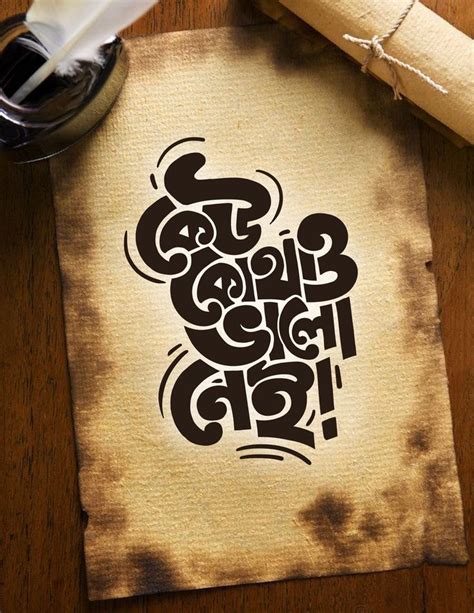 কেউ
কোথাও
ভালো
নেই!